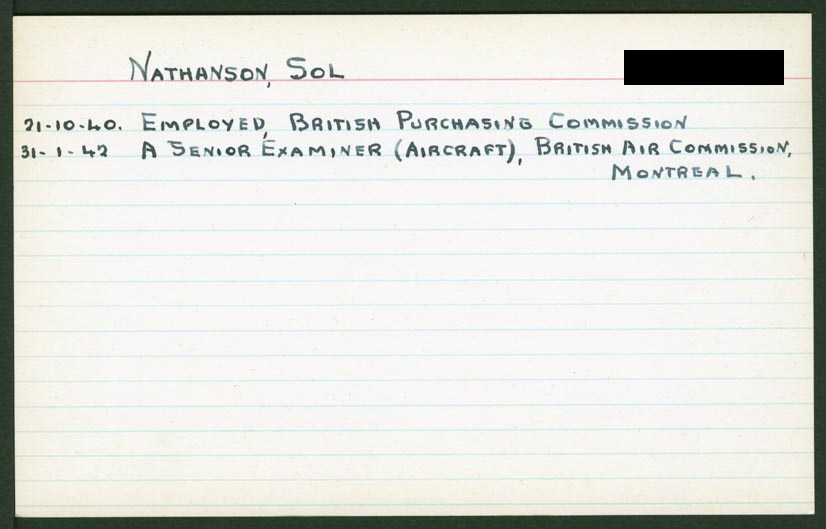 NATHANSON, SOL
21-10-40. EMPLOYED, BRITISH PURCHASING COMMISSION
31-1-42 A SENIOR EXAMINER (AIRCRAFT), BRITISH AIR COMMISSION,
MONTREAL.